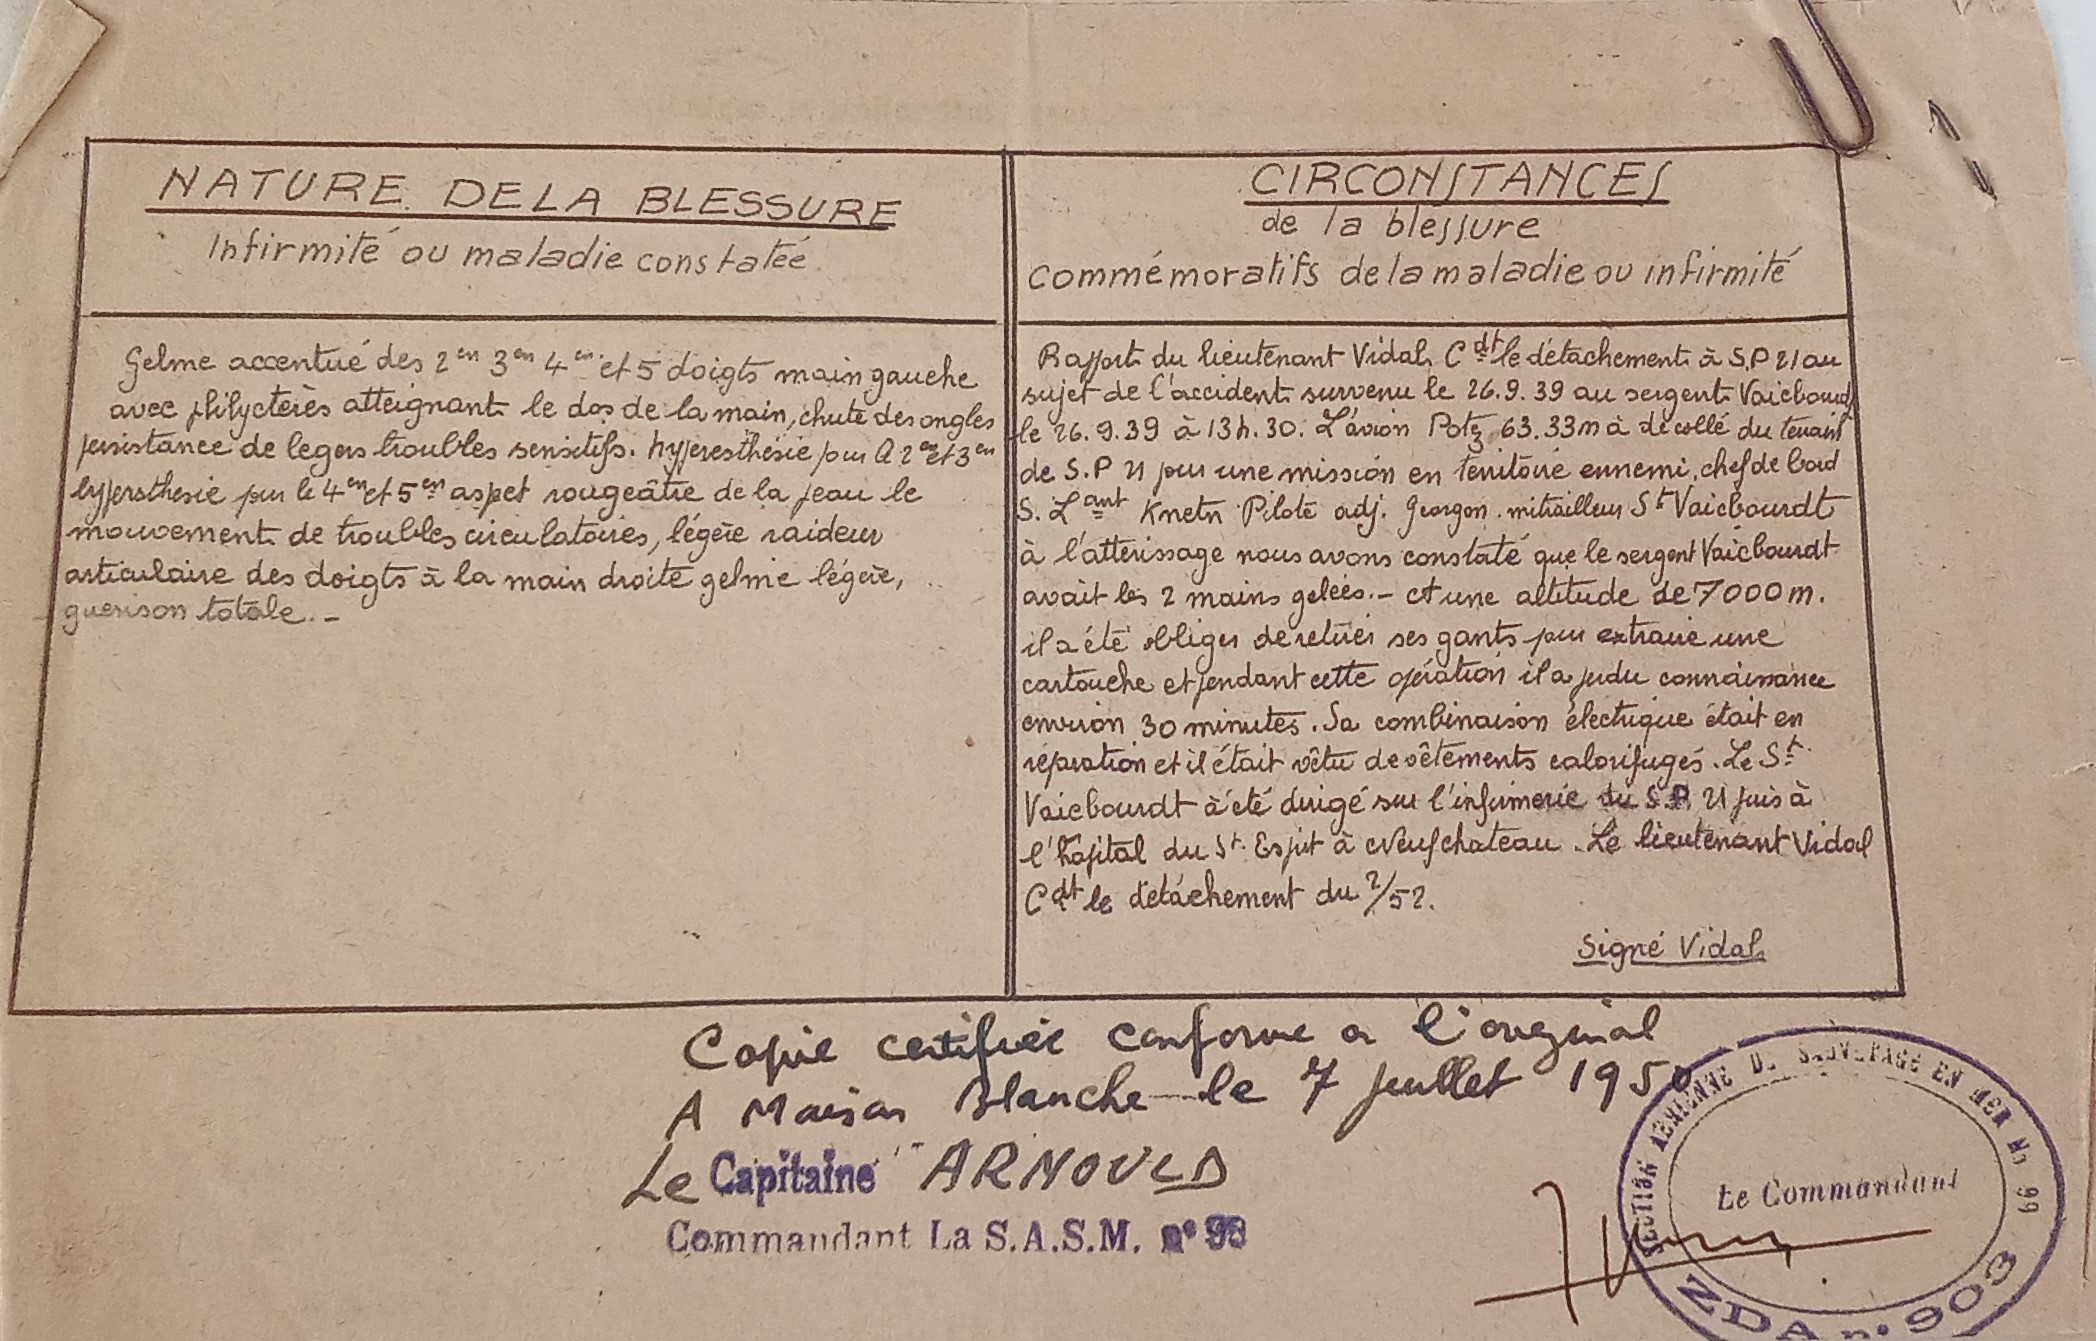 NATURE DE LA BLESSURE
Infirmité ou maladie constatée
Gelme accentué des 2em 3em 4em et 5 doigts main gauche
avec philyctères atteignant le dos de la main, chute des ongles
persistance de legers troubles sensitifs. hyperesthésie pur A 2em et 3em
hypersthesie pur le 4em et 5em aspet rougeâtre de la peau le
mouvement de troubles circulatoires, légère raideur
articulaire des doigts à la main droite gelmie légère,
guerison totale. -
CIRCONSTANCES
de la blessure
Commémoratifs de la maladie ou infirmité
Rapport du lieutenant Vidal Cdt le détachement à S.P 21 au
sujet de l'accident survenu le 26.9.39 au sergent Vaicbourdt
le 26.9.39 à 13h.30. L'avion Potez 63.33m à décollé du terrain
de S.P 21 pur une mission en territoire ennemi, chef de bord
S. Lant Knetn Pilote adj. Georgon. mitrailleur St Vaicbourdt
à l'atterissage nous avons constaté que le sergent Vaicbourdt
avait les 2 mains gelées. - A une altitude de 7000 m.
il a été obliger de retirer ses gants pur extraire une
cartouche et pendant cette opération il a perdu connaissance
environ 30 minutes. Sa combinaison électrique était en
réparation et il était vêtu de vêtements calorifugés. Le St
Vaicbourdt à été dirigé sur l'infirmerie du S.P. 21 puis à
l'hôpital du St Esprit à Neufchateau. Le lieutenant Vidal
Cdt le détachement du 2/52.
Signé Vidal
Copie certifiée conforme a l'original
A Maison Blanche le 7 juillet 1950
Le Capitaine ARNOULD
Commandant La S.A.S.M. n° 99
SECTION AERIENNE DE SAUVETAGE EN MER No 99
Le Commandant
ZDA n° 903